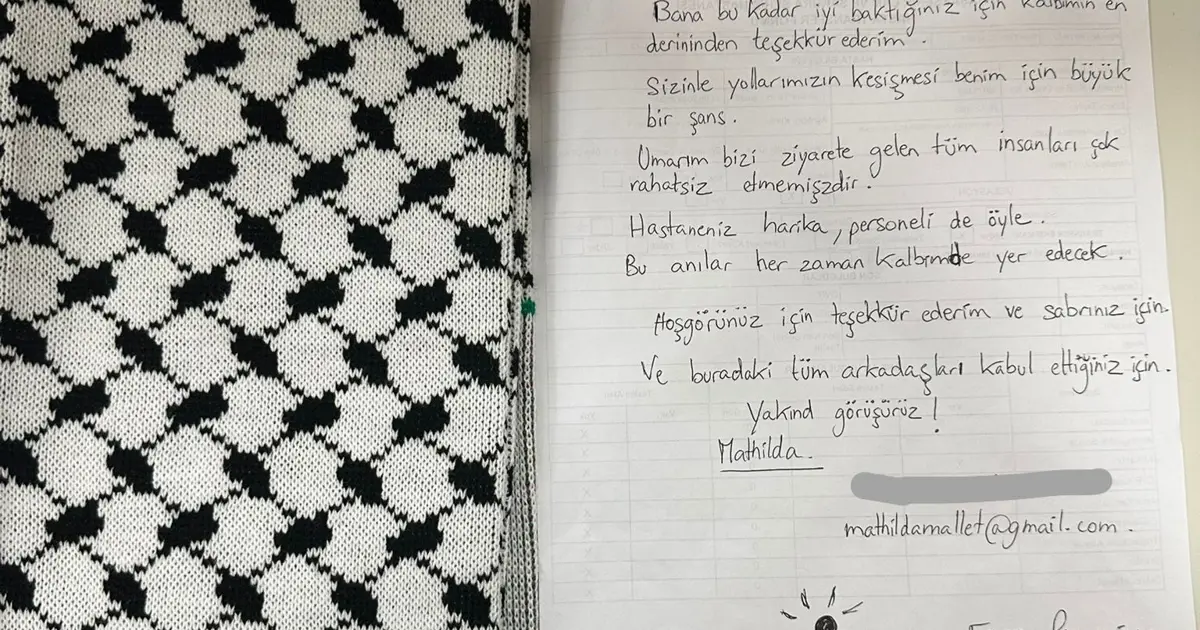 Bana bu kadar iyi baktığınız için kalbimin en
derininden teşekkür ederim.
Sizinle yollarımızın kesişmesi benim için büyük
bir şans.
Umarım bizi ziyarete gelen tüm insanları çok
rahatsiz etmemişzdir.
Hastaneniz harika, personeli de öyle.
Bu anılar her zaman kalbimde yer edecek.
Hoşgörünüz için teşekkür ederim ve sabrınız için.
Ve buradaki tüm arkadaşları kabul ettiğiniz için.
Yakınd görüşürüz!
Mathilda.
mathildamallet@gmail.com.